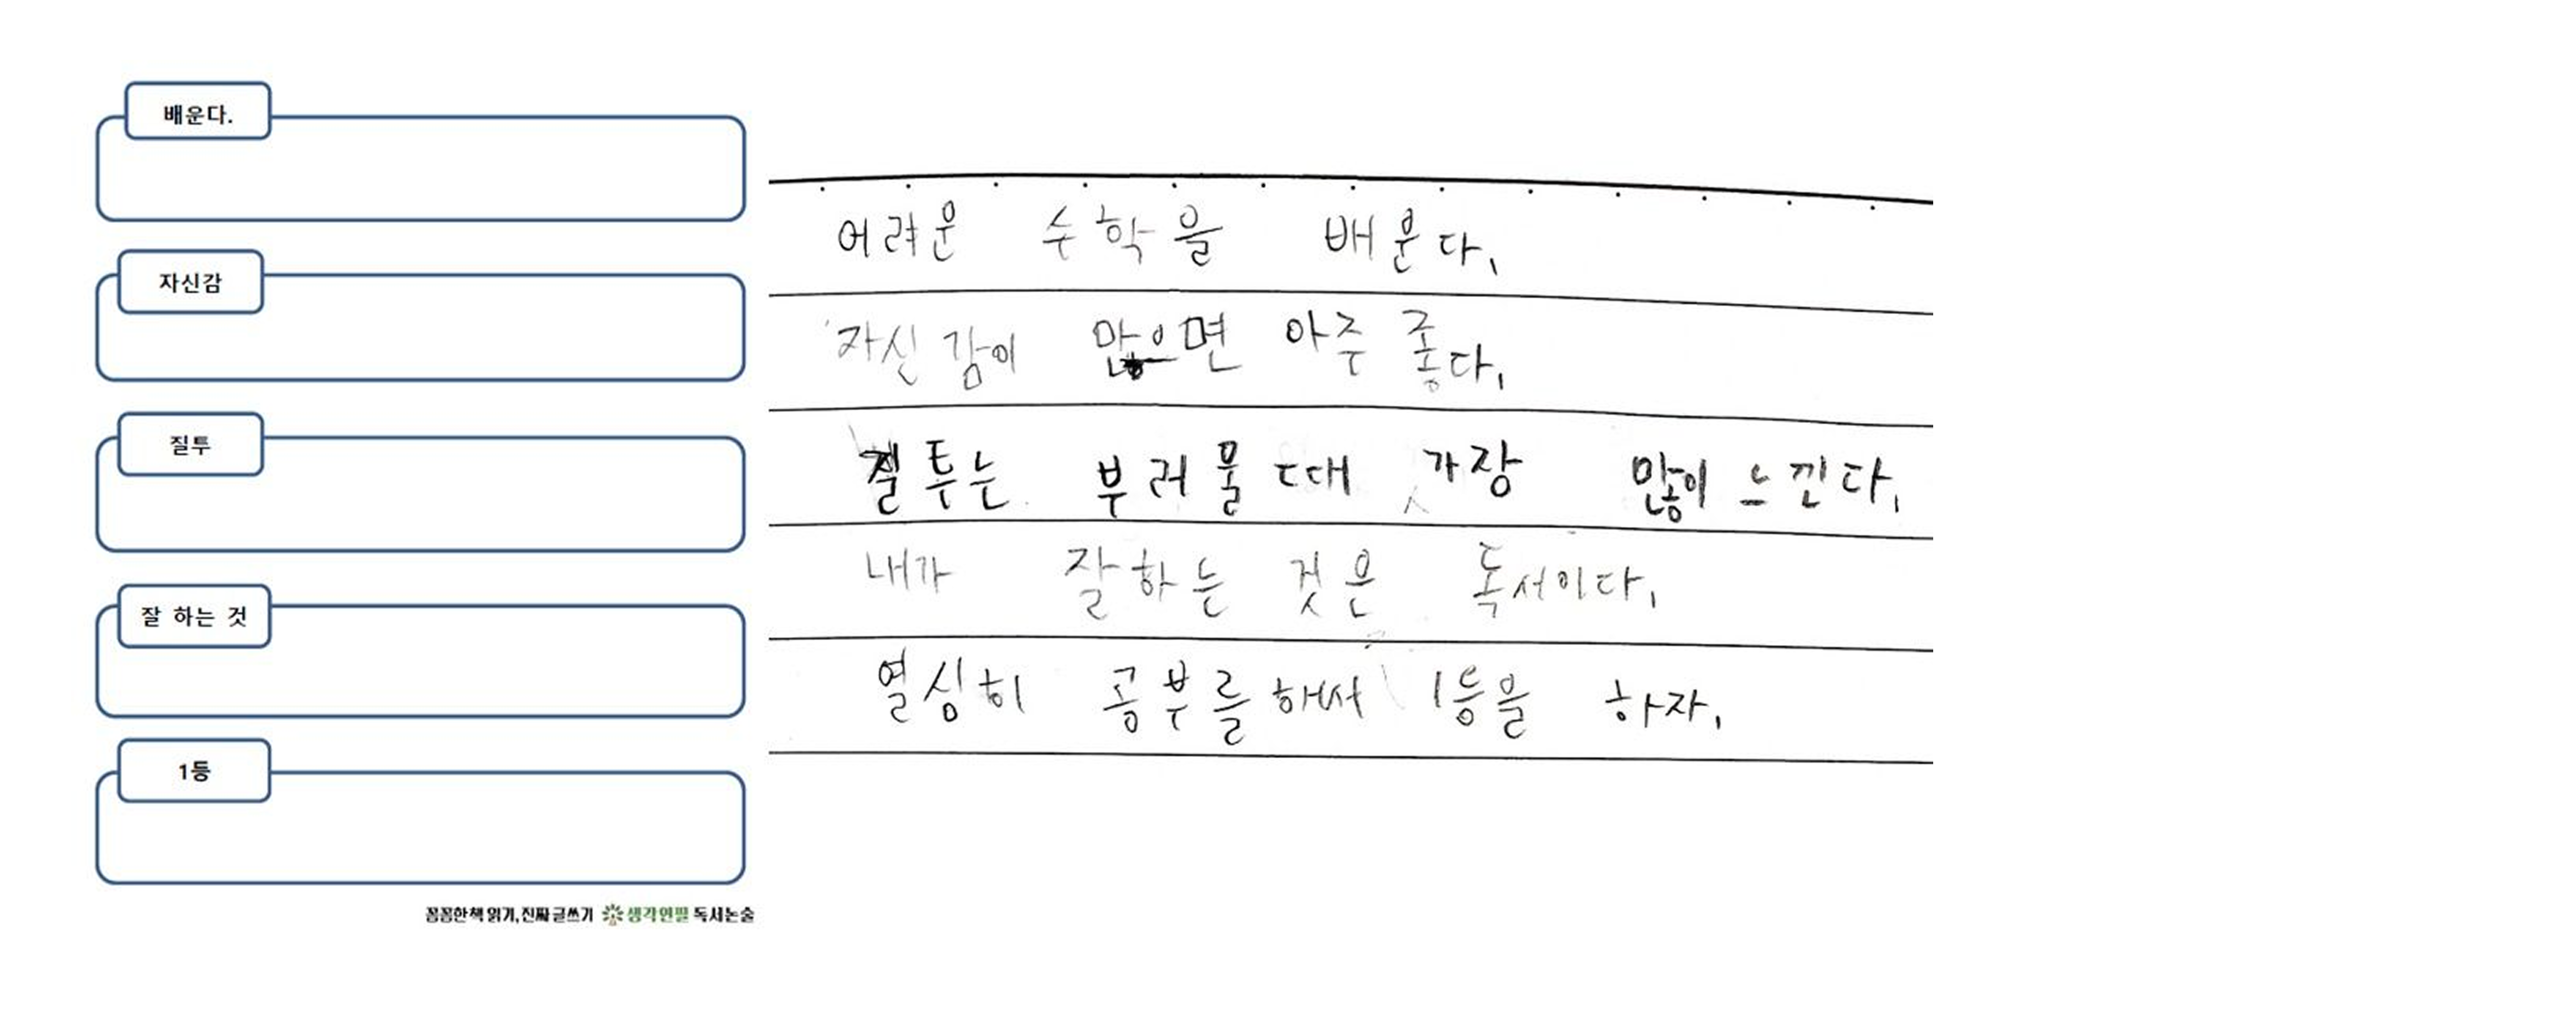 배운다.
자신감
질투
잘 하는 것
1등
꼼꼼한책 읽기, 진짜 글쓰기 생각연필 독서논술
어려운 수학을 배운다.
자신감이 많으면 아주 좋다.
질투는 부러울 때 가장 많이 느낀다.
내가 잘하는 것은 독서이다.
열심히 공부를 해서 1등을 하자.